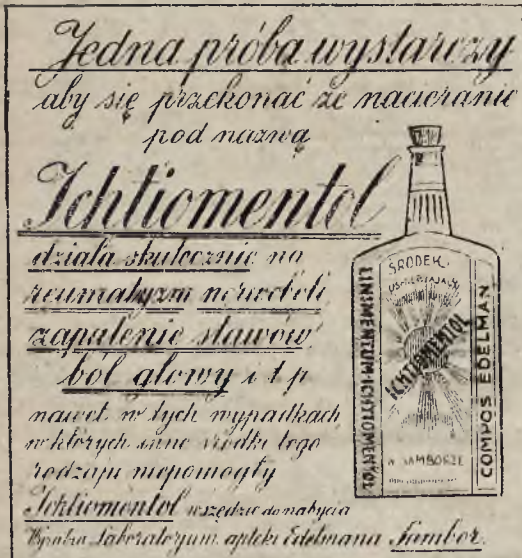 Jedna próba wystarczy
aby się przekonać że nacieranie
pod nazwą
Ichtiomentol
działa skutecznie na
reumatyzm nerwobóli
zapalenie stawów
ból głowy i t p
nawet w tych wypadkach
w których inne środki tego
rodzaju niepomogły
Ichtiomentol wszędzie do nabycia
Laboratoryum apteki Edelmana Sambor.
ŚRODEK
UŚMIERZAJĄCY
ICHTIOMENTOL
W SAMBORZE
LINIMENTUM ICHTIOMENTOL
COMPOS EDELMAN